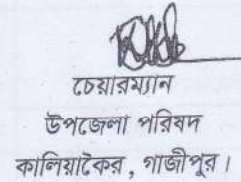 চেয়ারম্যান
উপজেলা পরিষদ
কালিয়াকৈর, গাজীপুর।